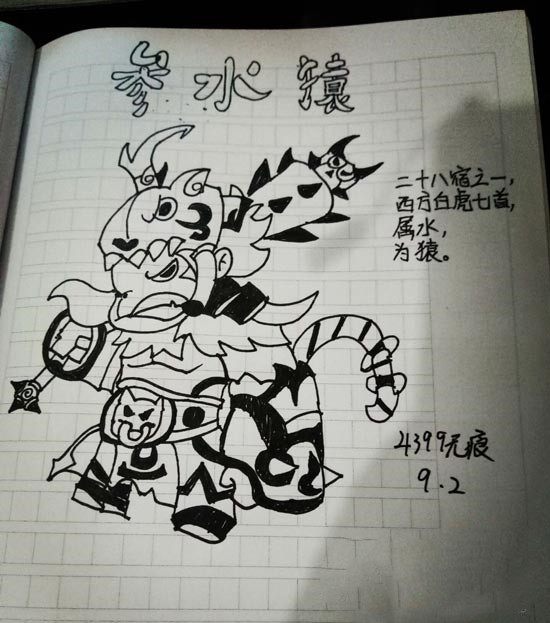 参水猿
二十八宿之一,
西方白虎七首,
属水,
为猿。
4399无痕
9.2